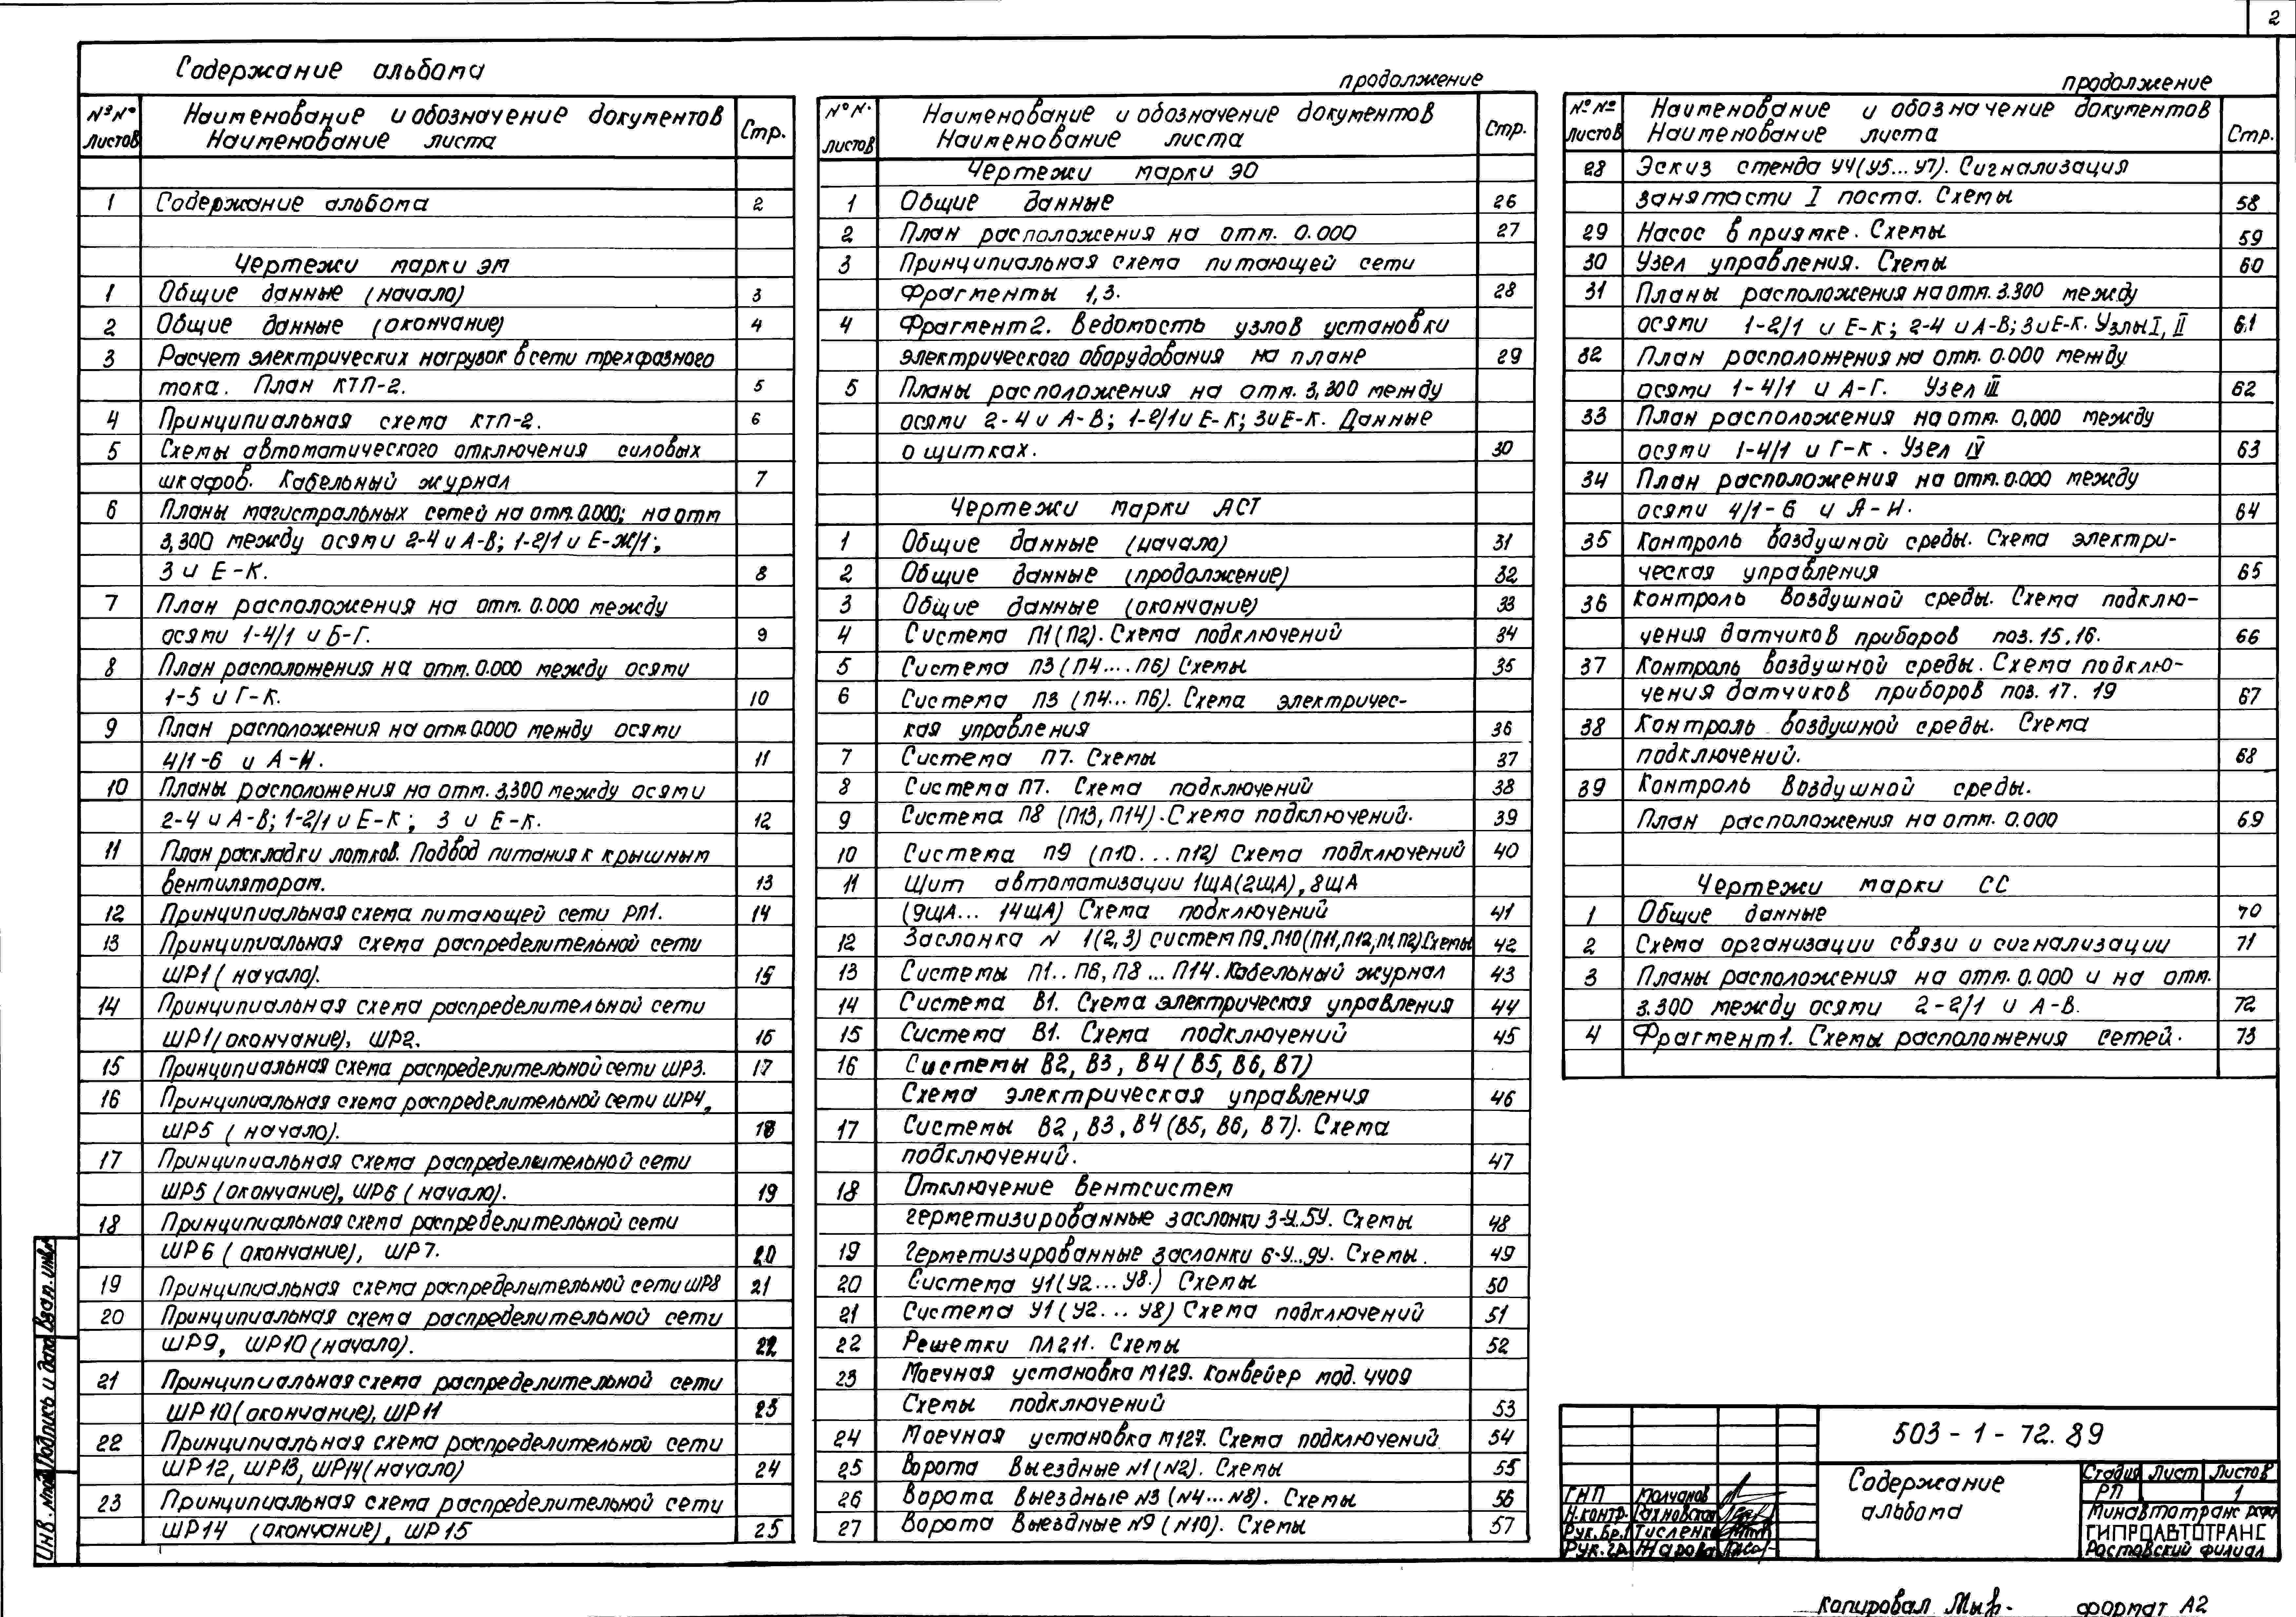 2
Содержание альбома
№№ листов
Наименование и обозначение документов
Наименование листа
Стр.
1 Содержание альбома 2
Чертежи марки ЭМ
1 Общие данные (начало) 3
2 Общие данные (окончание) 4
3 Расчет электрических нагрузок в сети трехфазного
тока. План КТП-2. 5
4 Принципиальная схема КТП-2. 6
5 Схемы автоматического отключения силовых
шкафов. Кабельный журнал 7
6 Планы магистральных сетей на отм. 0.000; на отм
3,300 между осями 2-4 и А-В; 1-2/1 и Е-Ж/1;
3 и Е-К. 8
7 План расположения на отм. 0.000 между
осями 1-4/1 и Б-Г. 9
8 План расположения на отм. 0.000 между осями
1-5 и Г-К. 10
9 План расположения на отм 0.000 между осями
4/1-6 и А-И. 11
10 Планы расположения на отм. 3,300 между осями
2-4 и А-В; 1-2/1 и Е-К; 3 и Е-К. 12
11 План раскладки лотков. Подвод питания к крышным
вентиляторам. 13
12 Принципиальная схема питающей сети РП1. 14
13 Принципиальная схема распределительной сети
ШР1 (начало). 15
14 Принципиальная схема распределительной сети
ШР1 (окончание), ШР2. 16
15 Принципиальная схема распределительной сети ШР3. 17
16 Принципиальная схема распределительной сети ШР4,
ШР5 (начало). 18
17 Принципиальная схема распределительной сети
ШР5 (окончание), ШР6 (начало). 19
18 Принципиальная схема распределительной сети
ШР6 (окончание), ШР7. 20
19 Принципиальная схема распределительной сети ШР8 21
20 Принципиальная схема распределительной сети
ШР9, ШР10 (начало). 22
21 Принципиальная схема распределительной сети
ШР10 (окончание), ШР11 23
22 Принципиальная схема распределительной сети
ШР12, ШР13, ШР14 (начало) 24
23 Принципиальная схема распределительной сети
ШР14 (окончание), ШР15 25
продолжение
№ N. листов
Наименование и обозначение документов
Наименование листа
Стр.
Чертежи марки ЭО
1 Общие данные 26
2 План расположения на отм. 0.000 27
3 Принципиальная схема питающей сети
Фрагменты 1,3. 28
4 Фрагмент 2. Ведомость узлов установки
электрического оборудования на плане 29
5 Планы расположения на отм. 3,300 между
осями 2-4 и А-В; 1-2/1 и Е-К; 3 и Е-К. Данные
о щитках. 30
Чертежи марки АСТ
1 Общие данные (начало) 31
2 Общие данные (продолжение) 32
3 Общие данные (окончание) 33
4 Система П1 (П2). Схема подключений 34
5 Система П3 (П4....П6) Схемы 35
6 Система П3 (П4...П6). Схема электричес-
кая управления 36
7 Система П7. Схемы 37
8 Система П7. Схема подключений 38
9 Система П8 (П13, П14). Схема подключений. 39
10 Система П9 (П10...П12) Схема подключений 40
11 Щит автоматизации 1ЩА (2ЩА), 8ЩА
(9ЩА... 14ЩА) Схема подключений 41
12 Заслонка N 1(2,3) систем П9, П10 (П11, П12, П1, П2) Схемы 42
13 Системы П1..П6, П8...П14. Кабельный журнал 43
14 Система В1. Схема электрическая управления 44
15 Система В1. Схема подключений 45
16 Системы В2, В3, В4 (В5, В6, В7)
Схема электрическая управления 46
17 Системы В2, В3, В4 (В5, В6, В7). Схема
подключений. 47
18 Отключение вентсистем
герметизированные заслонки 3-У.5У. Схемы 48
19 Герметизированные заслонки 6-У...9У. Схемы. 49
20 Система У1 (У2...У8.) Схемы 50
21 Система У1 (У2...У8) Схема подключений 51
22 Решетки ПЛ211. Схемы 52
23 Моечная установка М129. Конвейер мод. 4409
Схемы подключений 53
24 Моечная установка М127. Схема подключений 54
25 Ворота выездные N1 (N2). Схемы 55
26 Ворота выездные N3 (N4...N8). Схемы 56
27 Ворота выездные N9 (N10). Схемы 57
продолжение
№ № листов
Наименование и обозначение документов
Наименование листа
Стр.
28 Эскиз стенда У4 (У5...У7). Сигнализация
занятости I поста. Схемы 58
29 Насос в приямке. Схемы 59
30 Узел управления. Схемы 60
31 Планы расположения на отм. 3.300 между
осями 1-2/1 и Е-К; 2-4 и А-В; 3 и Е-К. Узлы I, II 61
32 План расположения на отм. 0.000 между
осями 1-4/1 и А-Г. Узел III 62
33 План расположения на отм. 0,000 между
осями 1-4/1 и Г-К. Узел IV 63
34 План расположения на отм. 0.000 между
осями 4/1-6 и А-И. 64
35 Контроль воздушной среды. Схема электри-
ческая управления 65
36 Контроль воздушной среды. Схема подклю-
чения датчиков приборов поз. 15,16. 66
37 Контроль воздушной среды. Схема подклю-
чения датчиков приборов поз. 17. 19 67
38 Контроль воздушной среды. Схема
подключений. 68
39 Контроль воздушной среды.
План расположения на отм. 0.000 69
Чертежи марки СС
1 Общие данные 70
2 Схема организации связи и сигнализации 71
3 Планы расположения на отм. 0.000 и на отм.
3.300 между осями 2-2/1 и А-В. 72
4 Фрагмент 1. Схемы расположения сетей. 73
503-1-72.89
Содержание
альбома
Стадия Лист Листов
РП 1
Минавтотранс РСФСР
ГИПРОАВТОТРАНС
Ростовский филиал
ГИП Молчанов
Н.контр.
Рук.бр. Тисленко
Рук.гр. Жарова
Инв. № подл Подпись и дата Взам. инв.
Копировал
формат А2